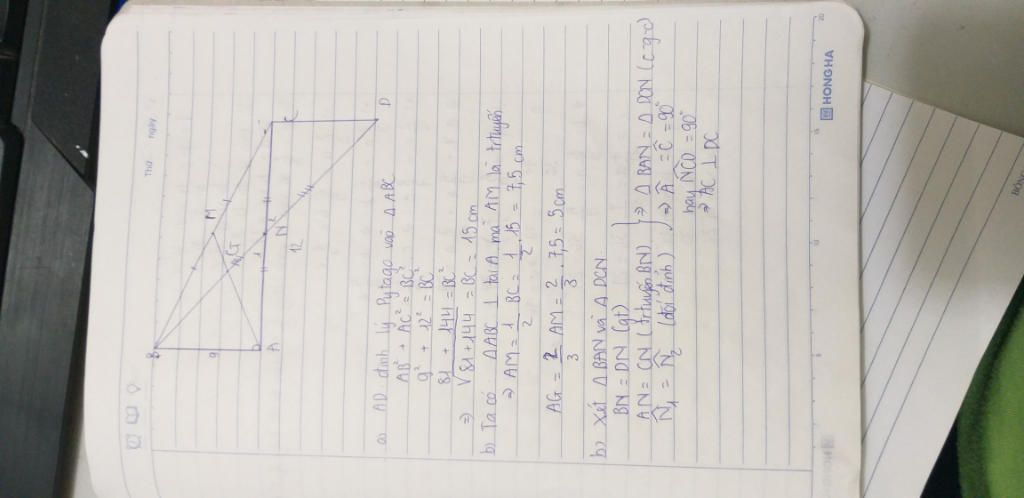 Thứ
ngày
B
M
G
9
1
2
N
12
A
C
D
a) AD định lý Pytago vào Δ ABC
AB² + AC² = BC²
9² + 12² = BC²
81 + 144 = BC²
⇒ √81 + 144 = BC = 15 cm
b) Ta có: Δ ABC ⊥ tại A mà AM là trtuyến
⇒ AM = 1/2 BC = 1/2 . 15 = 7,5 cm
AG = 2/3 AM = 2/3 . 7,5 = 5 cm
b) Xét Δ BAN và Δ DCN
BN = DN (gt)
AN = CN (trtuyến BN) } ⇒ Δ BAN = Δ DCN (c-g-c)
N̂₁ = N̂₂ (đối đỉnh) ⇒ Â = Ĉ = 90°
hay NĈD = 90°
⇒ AC ⊥ DC
HONG HA